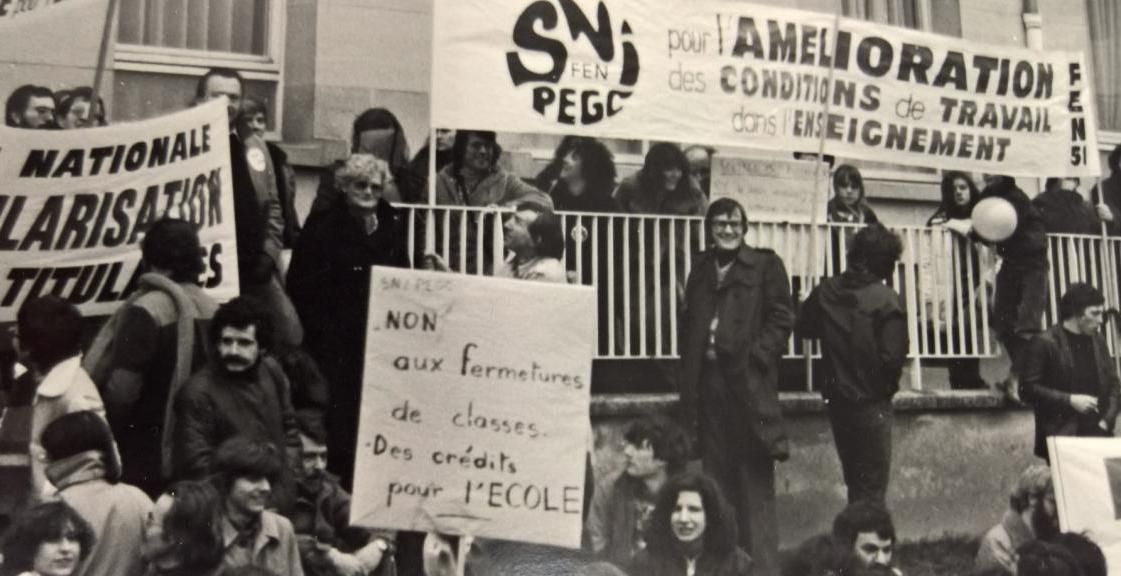 NATIONALE
TITUL
SNi
FEN
PEGC
pour l'AMELIORATION
des CONDITIONS de TRAVAIL
dans l'ENSEIGNEMENT
FEN
51
SNI PEGC
NON
aux fermetures
de classes.
-Des crédits
pour l'ECOLE